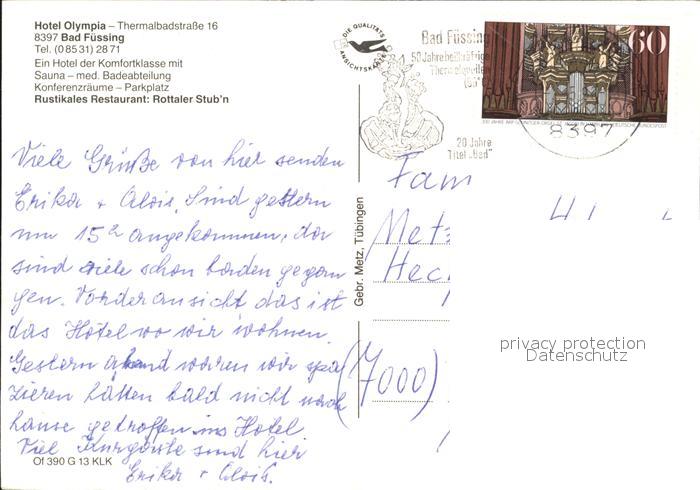 Hotel Olympia – Thermalbadstraße 16
8397 Bad Füssing
Tel. (0 85 31) 28 71
Ein Hotel der Komfortklasse mit
Sauna – med. Badeabteilung
Konferenzräume – Parkplatz
Rustikales Restaurant: Rottaler Stub'n
Viele Grüße von hier senden
Erika + Alois. Sind gestern
um 15h angekommen, da
sind viele schon baden gegan
gen. Vorderansicht das ist
das Hotel wo wir wohnen.
Gestern abend waren wir spa
zieren hätten bald nicht nach
hause getroffen ins Hotel
Viel Kurgäste sind hier
Erika + Alois.
Of 390 G 13 KLK
Gebr. Metz, Tübingen
DIE QUALITÄTS
ANSICHTSKARTE
Bad Füssing
50 Jahre heilkräftige
Thermalquelle
20 Jahre
Titel „Bad"
8397
60
DEUTSCHE BUNDESPOST
Fam
Metz
Hec
(7000)
privacy protection
Datenschutz